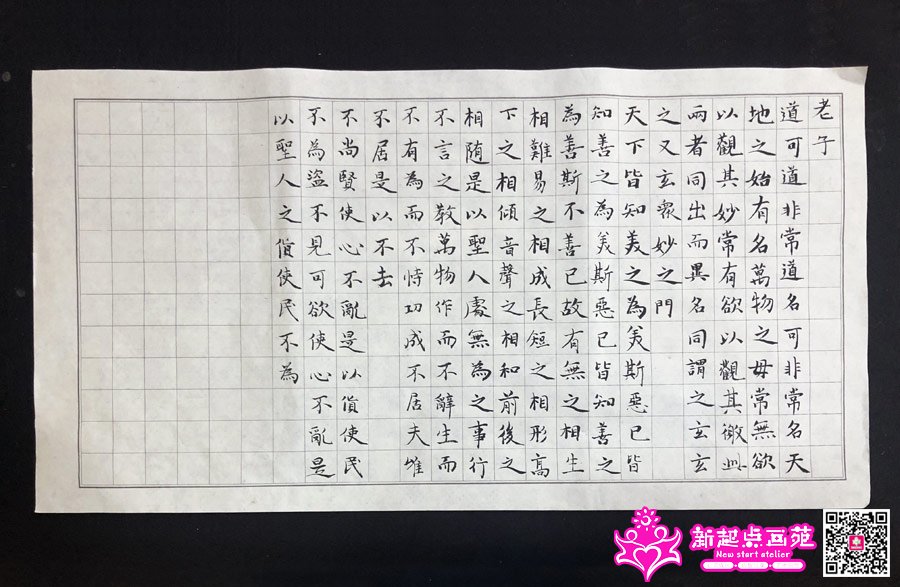 老子
道可道非常道名可非常名天
地之始有名萬物之毋常無欲
以觀其妙常有欲以觀其徼此
兩者同出而異名同謂之玄玄
之又玄眾妙之門
天下皆知美之為美斯惡已皆
知善之為美斯惡已皆知善之
為善斯不善已故有無之相生
相難易之相成長短之相形高
下之相傾音聲之相和前後之
相随是以聖人處無為之事行
不言之教萬物作而不辭生而
不有為而不恃功成不居夫惟
不居是以不去
不尚賢使心不亂是以貨使民
不為盜不見可欲使心不亂是
以聖人之貨使民不為
新起点画苑
New start atelier